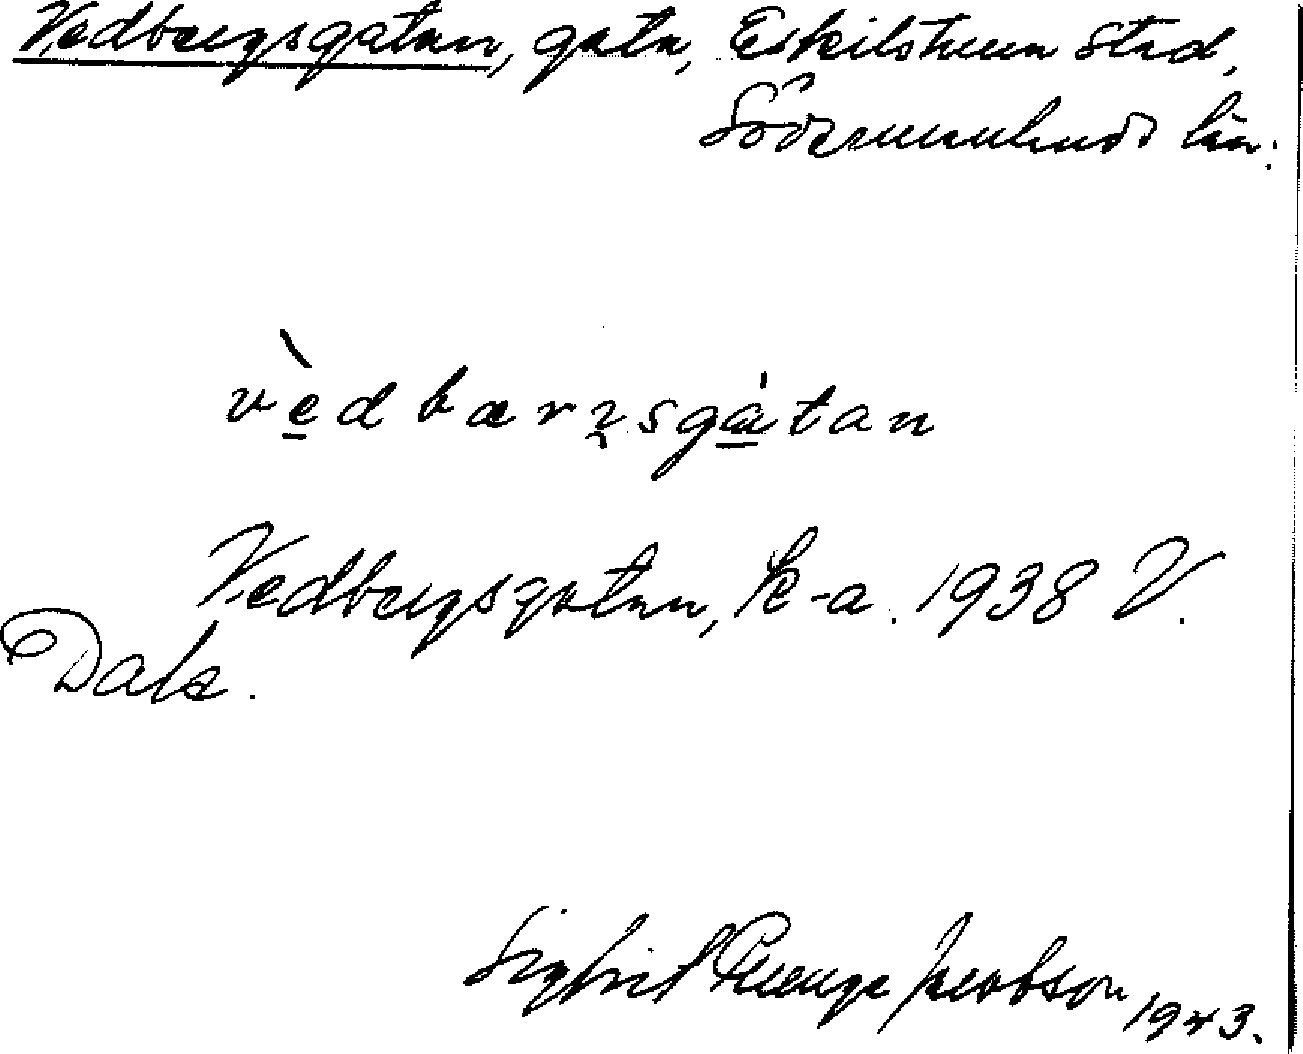 Vedbergsgatan, gata, Eskilstuna stad,
Södermanlands län.
vèdbærgsgátan
Vedbergsgatan, k-a. 1938 V.
Dals.
Sigfrid Jacobson 1943.